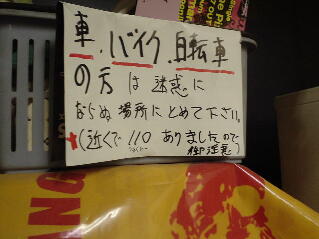 車、バイク、自転車
の方は迷惑に
ならぬ場所にとめて下さい。
★(近くで110ありましたので
御注意)
ANG